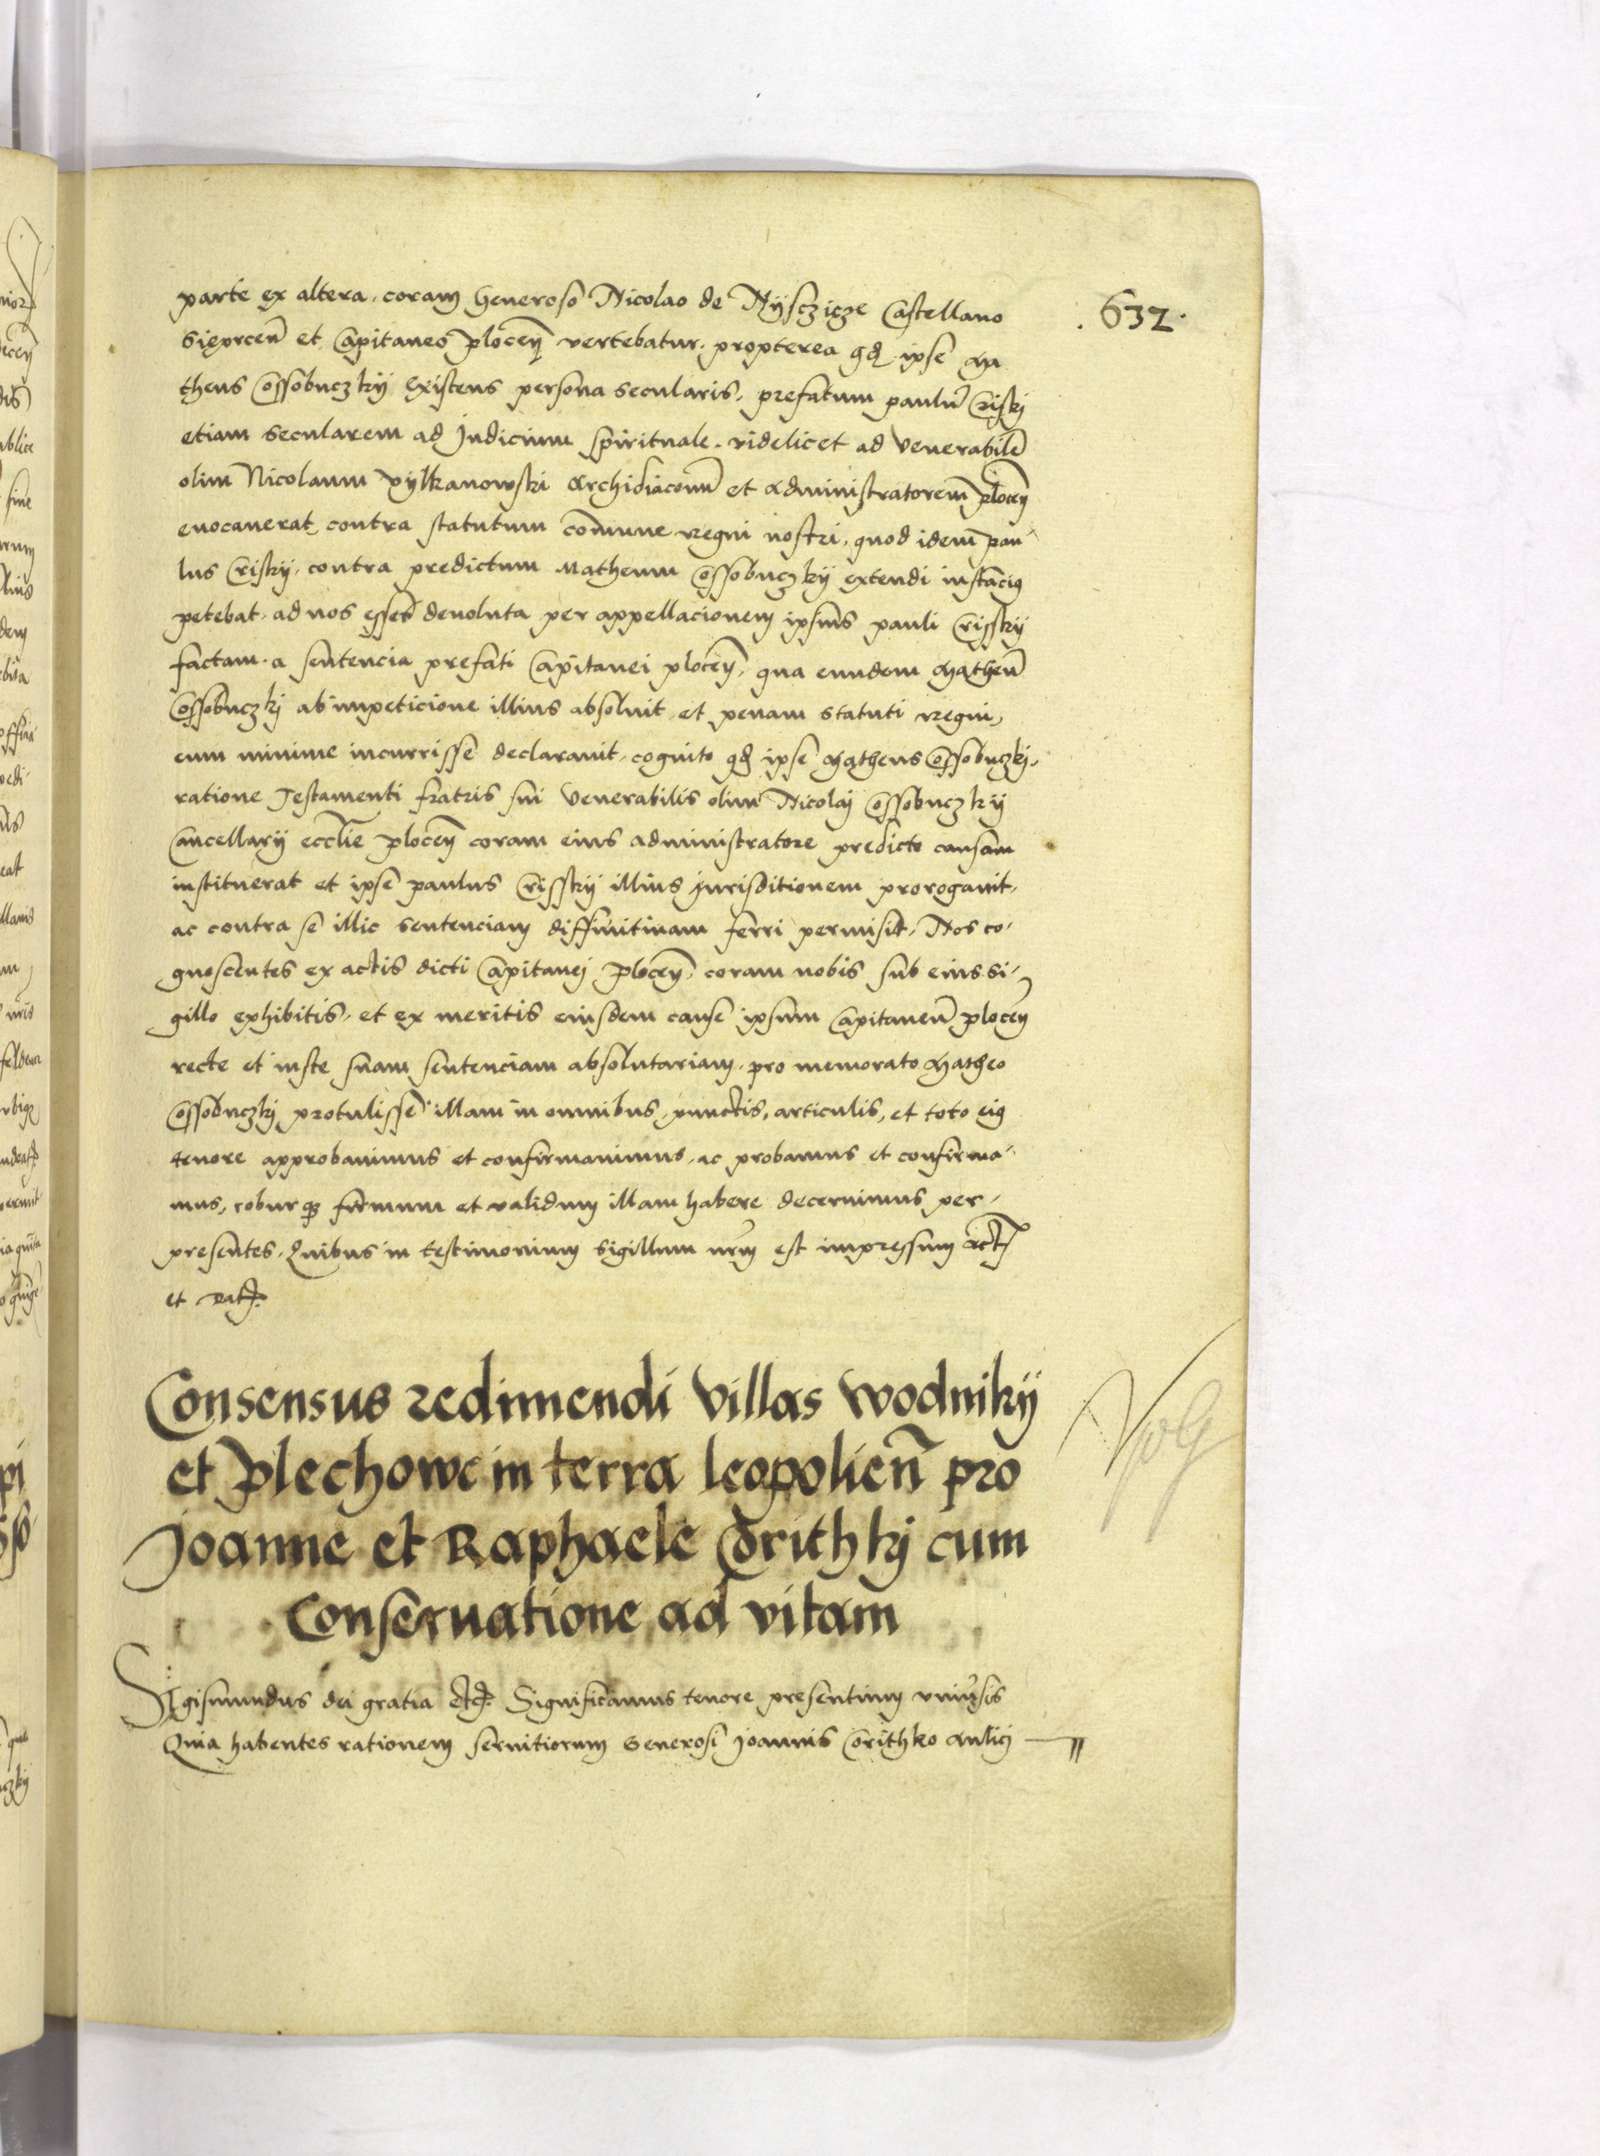 632
parte ex altera, coram Generoso Nicolao de Nysczicze Castellano
Sieprceñ et Capitaneo plocen vertebatur, propterea qd ipse Ma
theus Ossobuczky Existens persona secularis, prefatum paulū Criski
etiam secularem ad Judicium spirituale, videlicet ad Venerabilē
olim Nicolaum Vylkanowski Archidiaconū et administratorem plocen
euocauerat, contra statutum comune regni nostri, quod idem pau
lus Crisky, contra predictum Matheum Ossobuczky extendi instācius
petebat, ad nos esset deuoluta per appellacionem ipsius pauli Crissky
factam, a sentencia prefati Capitanei plocen, qua eundem Matheū
Ossobuczkj ab impeticione illius absoluit, et penam statuti regni,
eum minime incurrisse declarauit, cognito qd ipse Matheus Ossobuczkj,
ratione Testamenti fratris sui Venerabilis olim Nicolaj Ossobuczky
Cancellarij ecclie plocen coram eius administratore predicto causam
instituerat et ipse paulus Crissky illius jurisditionem prorogauit,
ac contra se illic sentenciam diffinitiuam ferri permisit, Nos co-
gnoscentes ex actis dicti Capitanej plocen, coram nobis sub eius si-
gillo exhibitis, et ex meritis eiusdem cause ipsum Capitaneū plocen
recte et iuste suam sentenciam absolutariam, pro memorato Matheo
Ossobuczkj protulisse illam in omnibus, punctis, articulis, et toto eius
tenore approbauimus et confirmauimus, ac probamus et confirma-
mus, roburq3 firmum et validum illam habere decernimus per-
presentes, Quibus in testimonium sigillum nrm est impressum Act
et Dat.
Consensus redimendi Villas Wodniky
et Plechowe in terra leopolieñ pro
Joanne et Raphaele Corithkj cum
Conseruatione ad vitam
Sigismundus dei gratia etc. Significamus tenore presentium vniuersis
Quia habentes rationem seruitiorum Generosi Joannis Corithko Aulicj